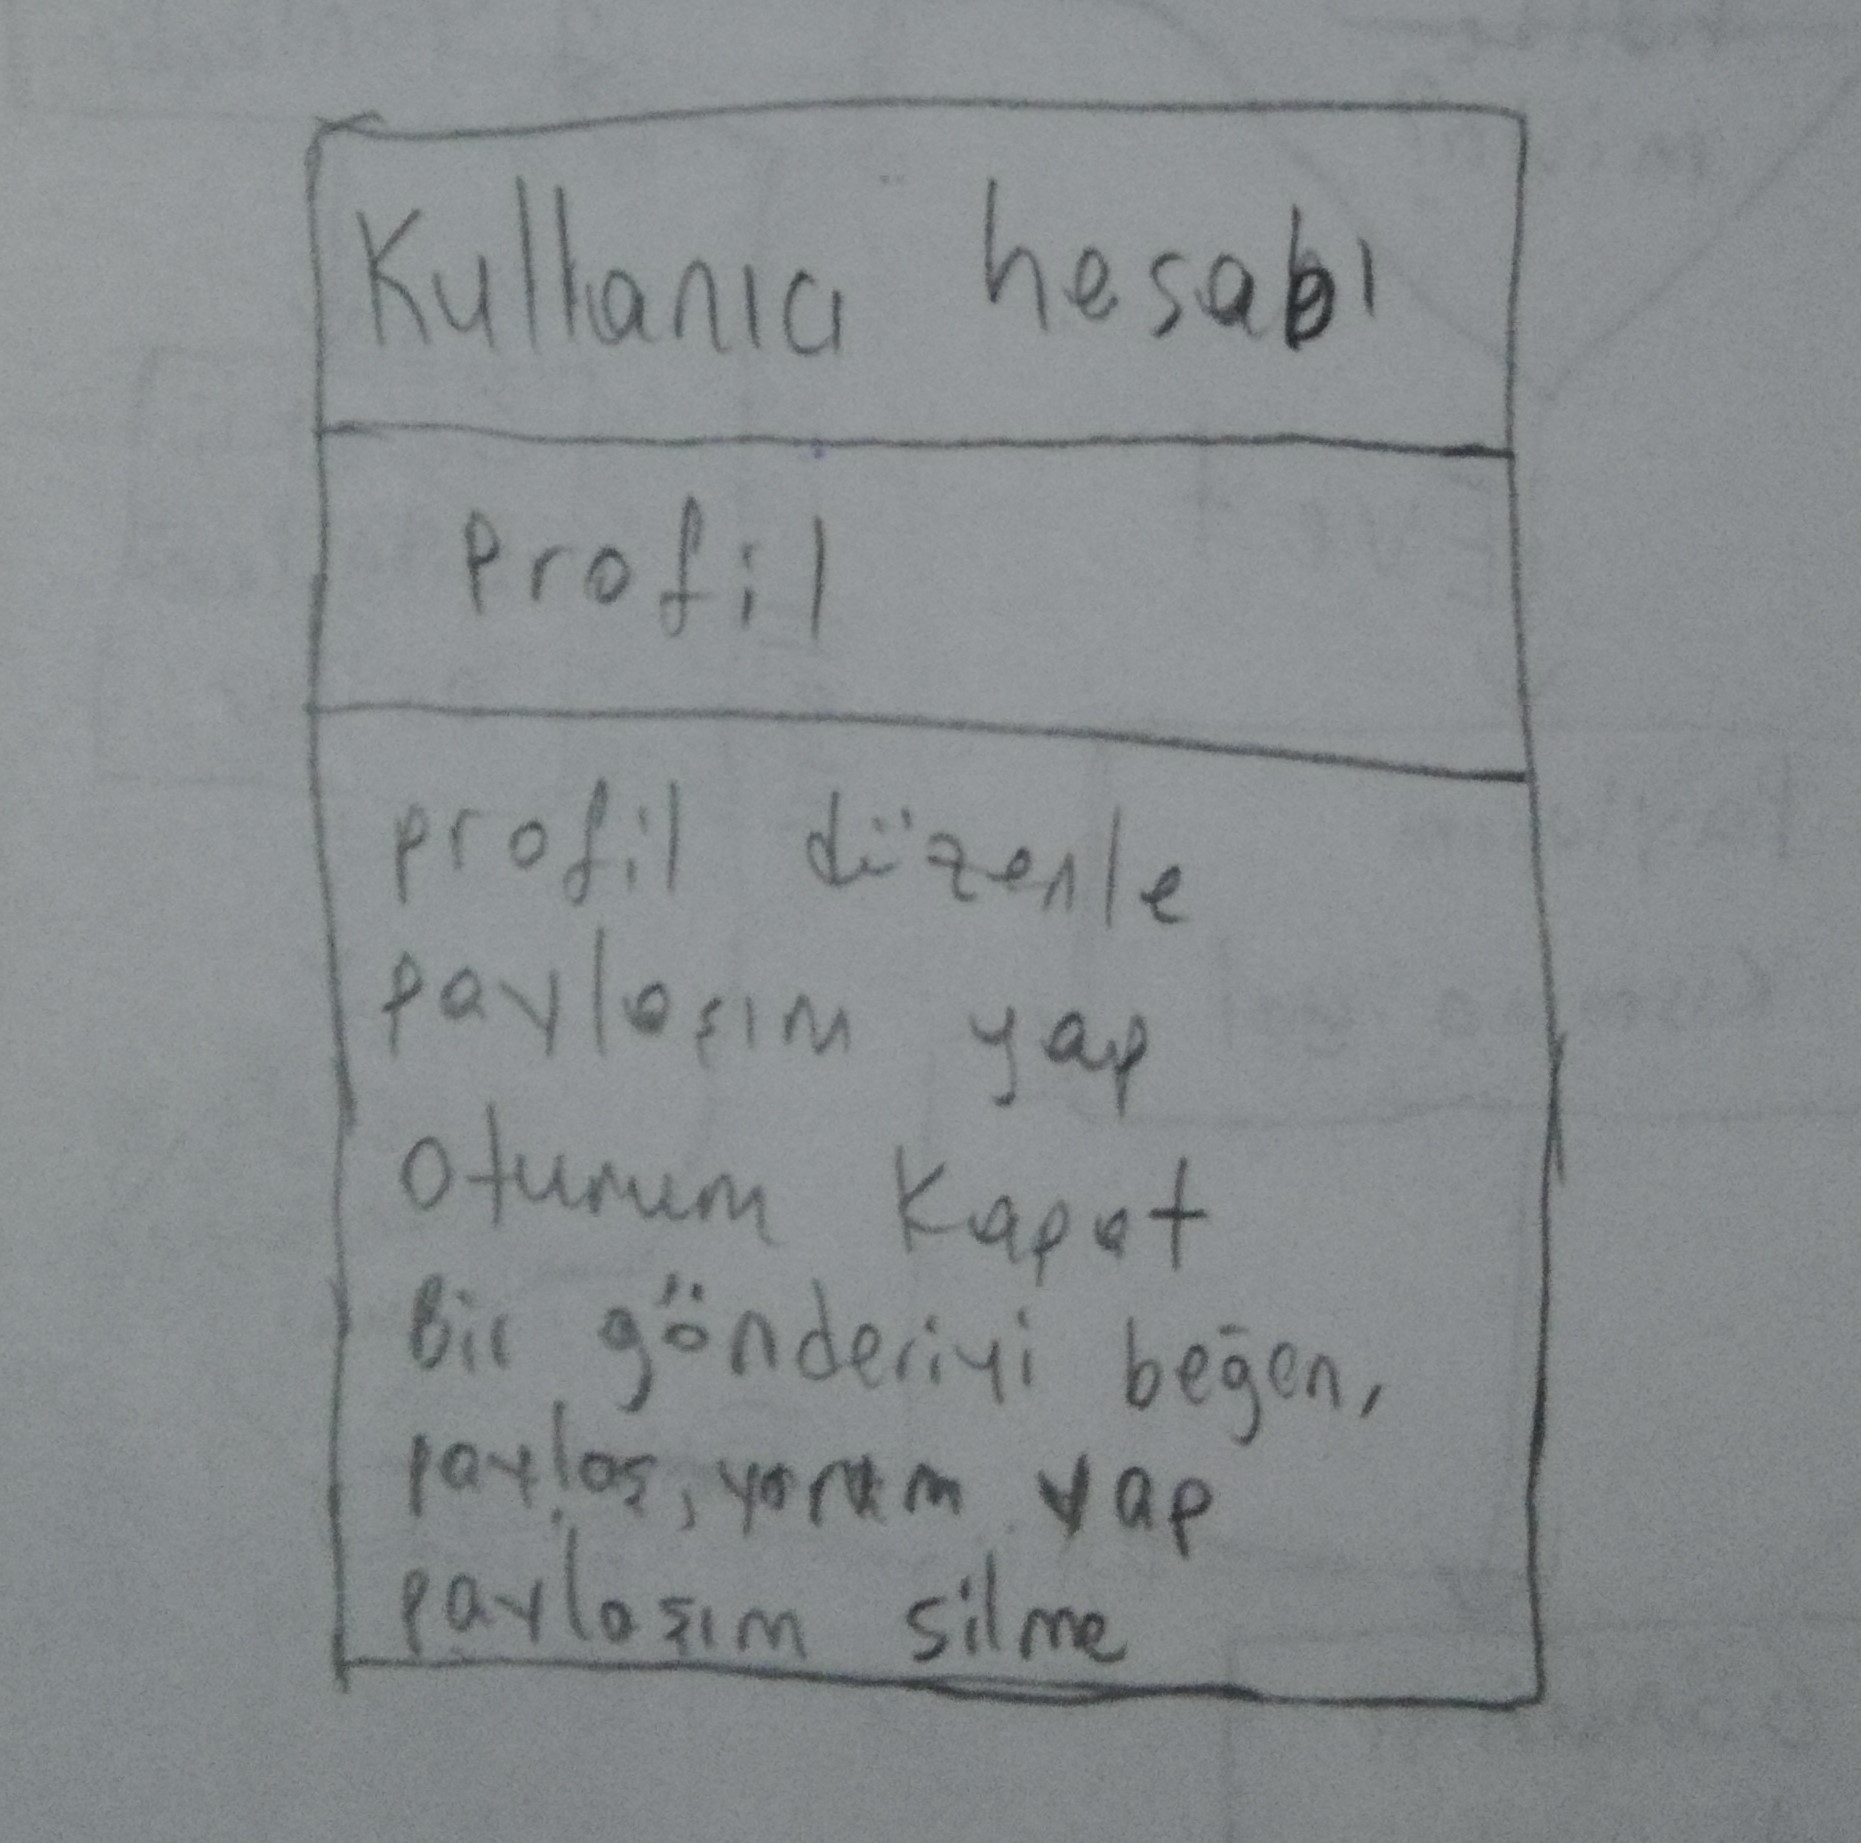 Kullanıcı hesabı
Profil
profil düzenle
paylaşım yap
oturum Kapat
Bir gönderiyi beğen,
paylaş, yorum yap
paylaşım silme